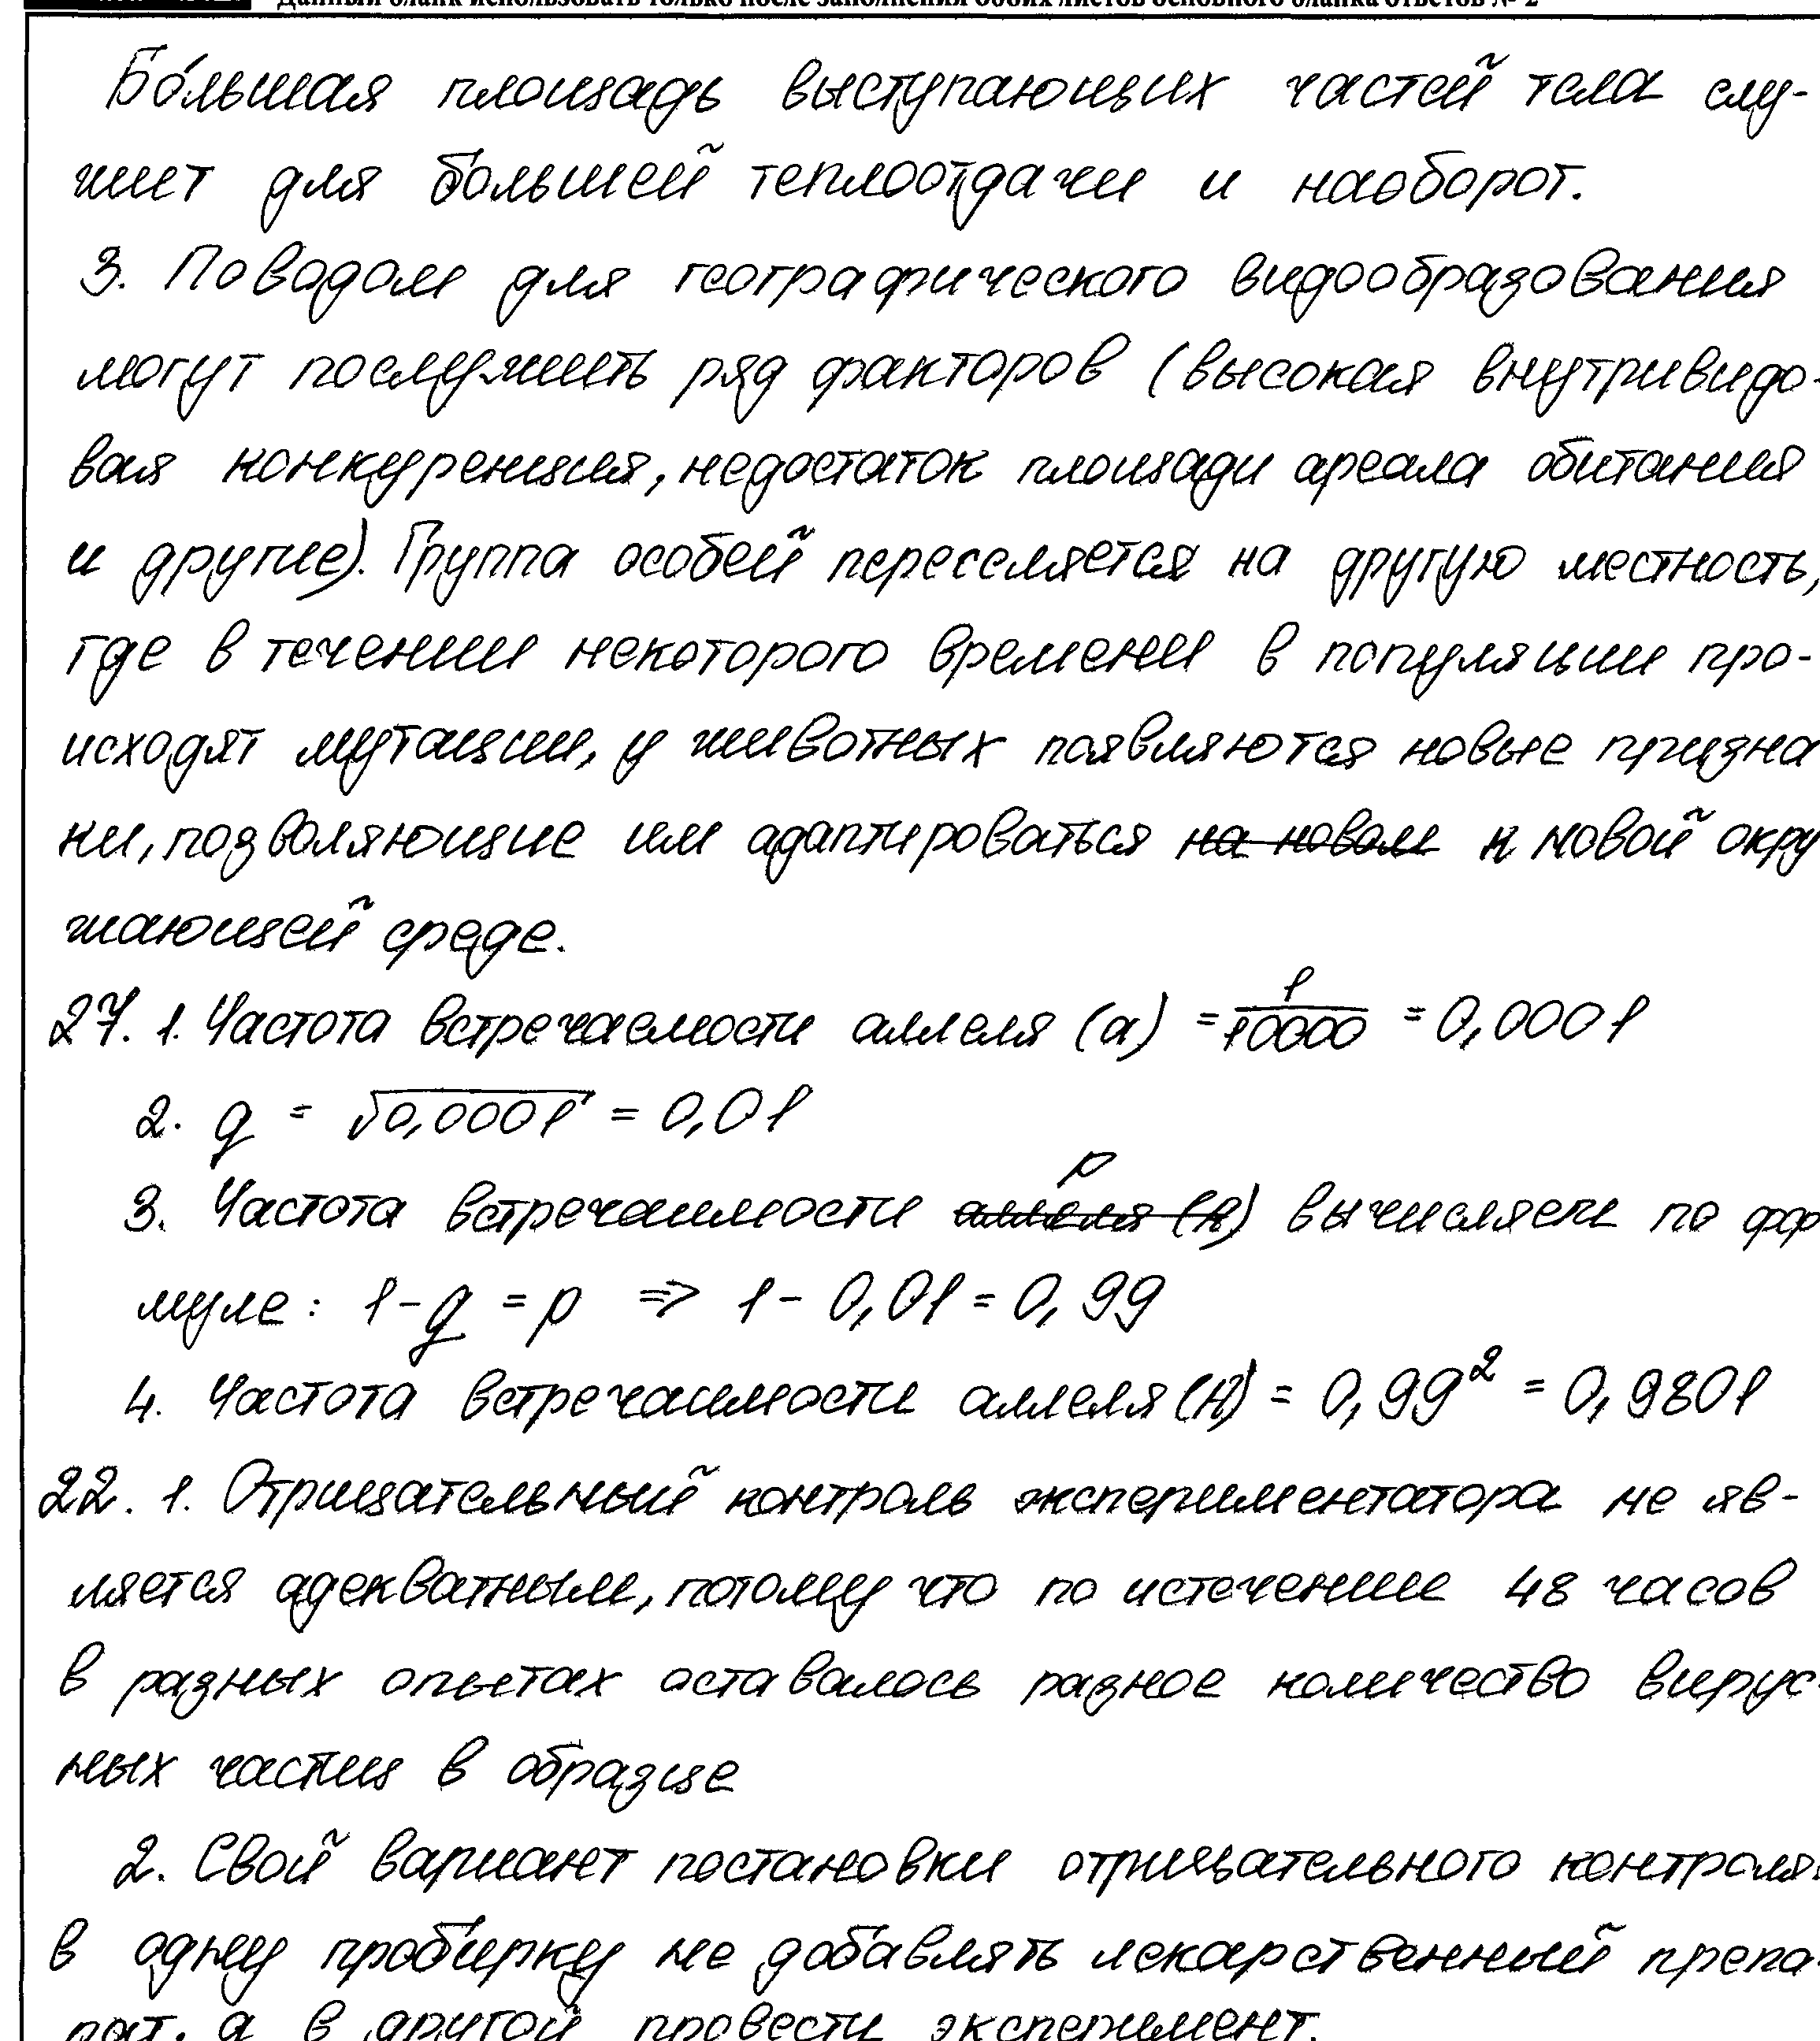 Данный бланк использовать только после заполнения обоих листов основного бланка ответов № 2
Бо́льшая площадь выступающих частей тела слу-
жит для большей теплоотдачи и наоборот.
3. Поводом для географического видообразования
могут послужить ряд факторов (высокая внутривидо-
вая конкуренция, недостаток площади ареала обитания
и другие). Группа особей переселяется на другую местность,
где в течении некоторого времени в популяции про-
исходят мутации, у животных появляются новые призна
ки, позволяющие им адаптироваться на новом к новой окру
жающей среде.
27. 1. Частота встречаемости аллеля (а) = 1/10000 = 0,0001
2. q = √0,0001 = 0,01
p
3. Частота встречаимости аллеля (А) вычисляем по фор
муле: 1 - q = p ⇒ 1 - 0,01 = 0,99
4. Частота встречаимости аллеля (А) = 0,99² = 0,9801
22. 1. Отрицательный контроль экспериментатора не яв-
ляется адекватным, потому что по истечение 48 часов
в разных опытах оставалось разное количество вирус-
ных частиц в образце
2. Свой вариант постановки отрицательного контроля:
в одну пробирку не добавлять лекарственный препа-
рат, а в другой провести эксперимент.